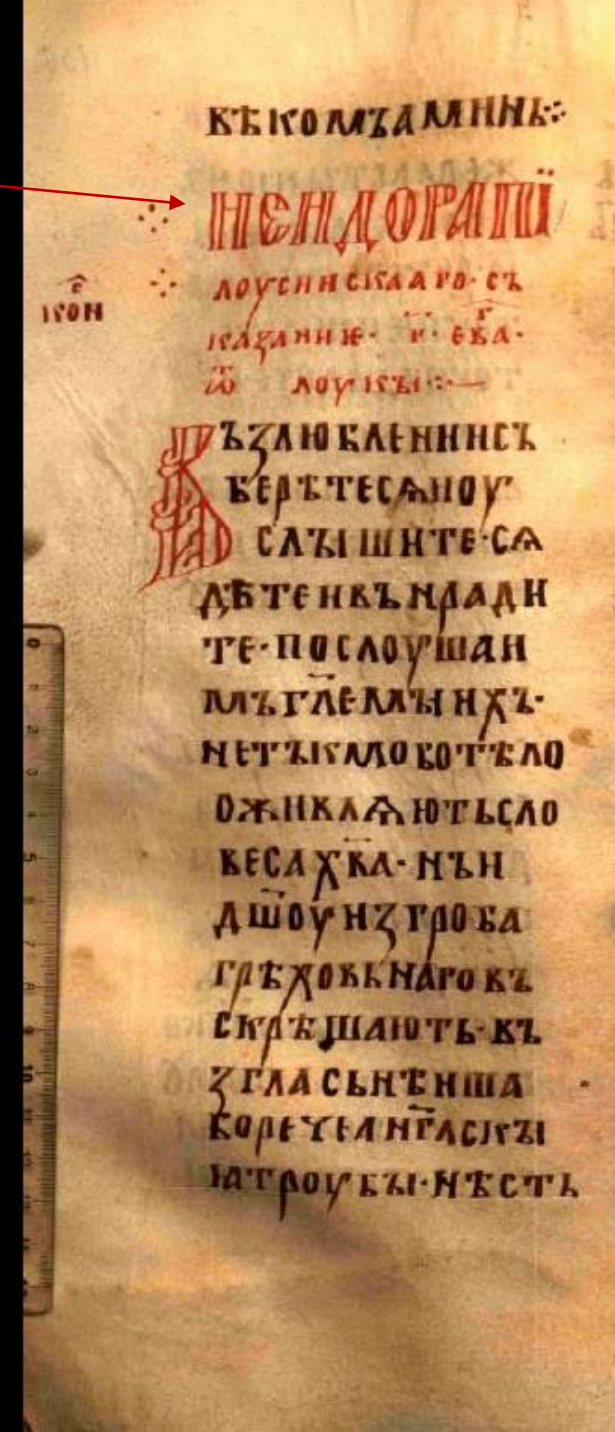 вѣкомъаминь⁘
исидорапї
лоусиискааго·съ
казаниѥ· г҃· ева҃г·
ѿ лоукы⁘—
Възлюблениисъ
берѣтесѧноу
слꙑшите·сѧ
дѣтеивъиради
те·послоушаи
мъгл҃емꙑихъ·
нетъкмоботѣло
оживлѧютьсло
весах҃ва·нън
дш҃оуизгроба
грѣховьнаговъ
скрѣшають·въ
згласьнѣиша
бореченг҃лскꙑ
ꙗтроубꙑ·нѣсть
икон҇